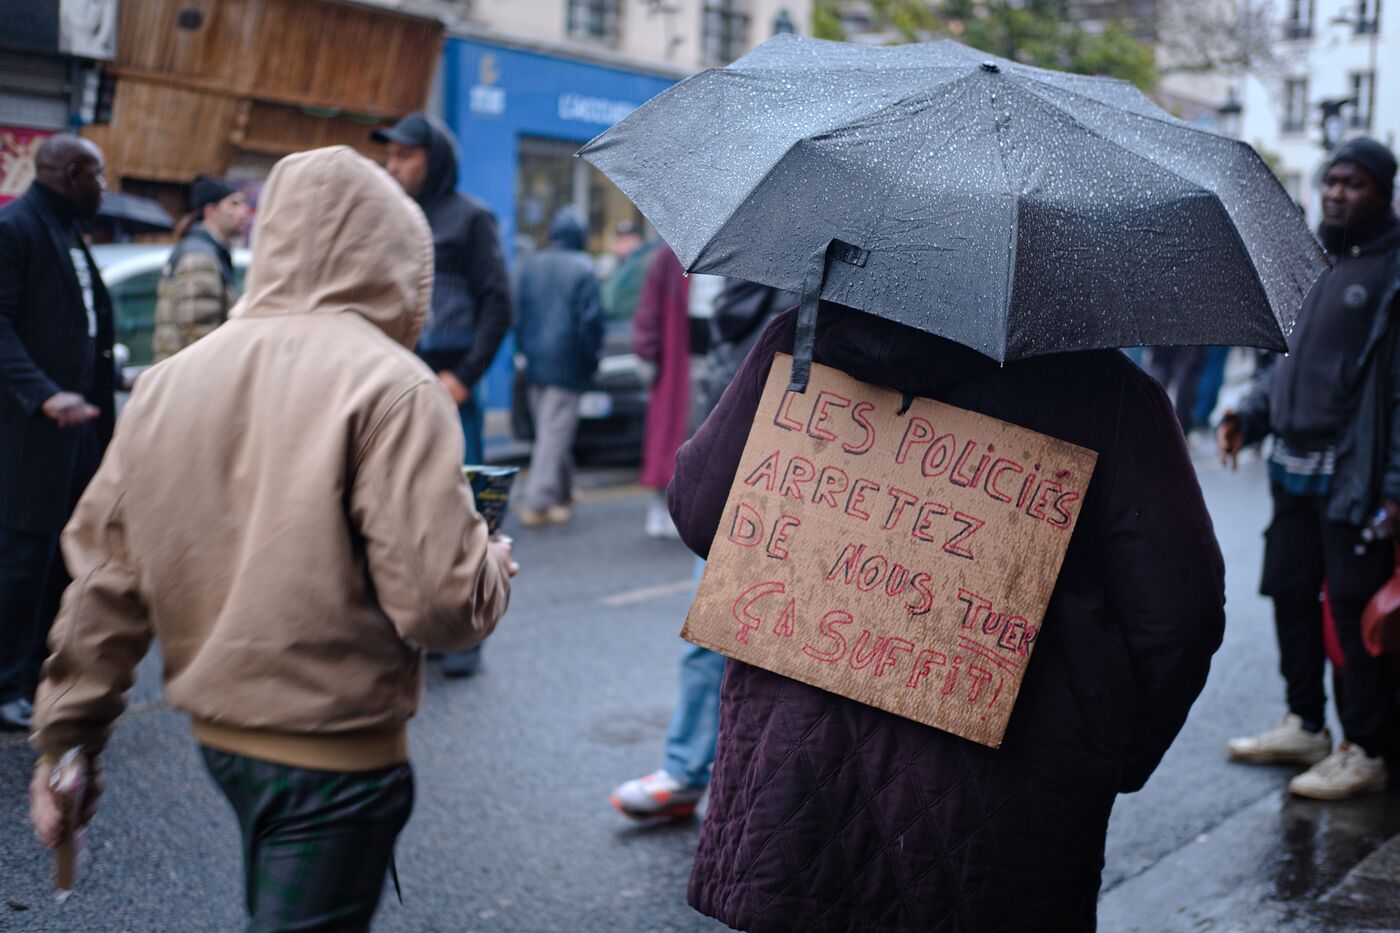 LES POLICIÉS
ARRETEZ
DE NOUS TUER
ÇA SUFFIT!